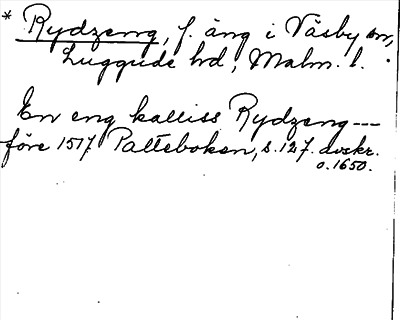 * Rydzeng, f. äng i Väsby sn,
Luggude hd, Malm. l.
En eng kalliss Rydzeng---
före 1517 Palteboken, s. 127. avskr.
o. 1650.